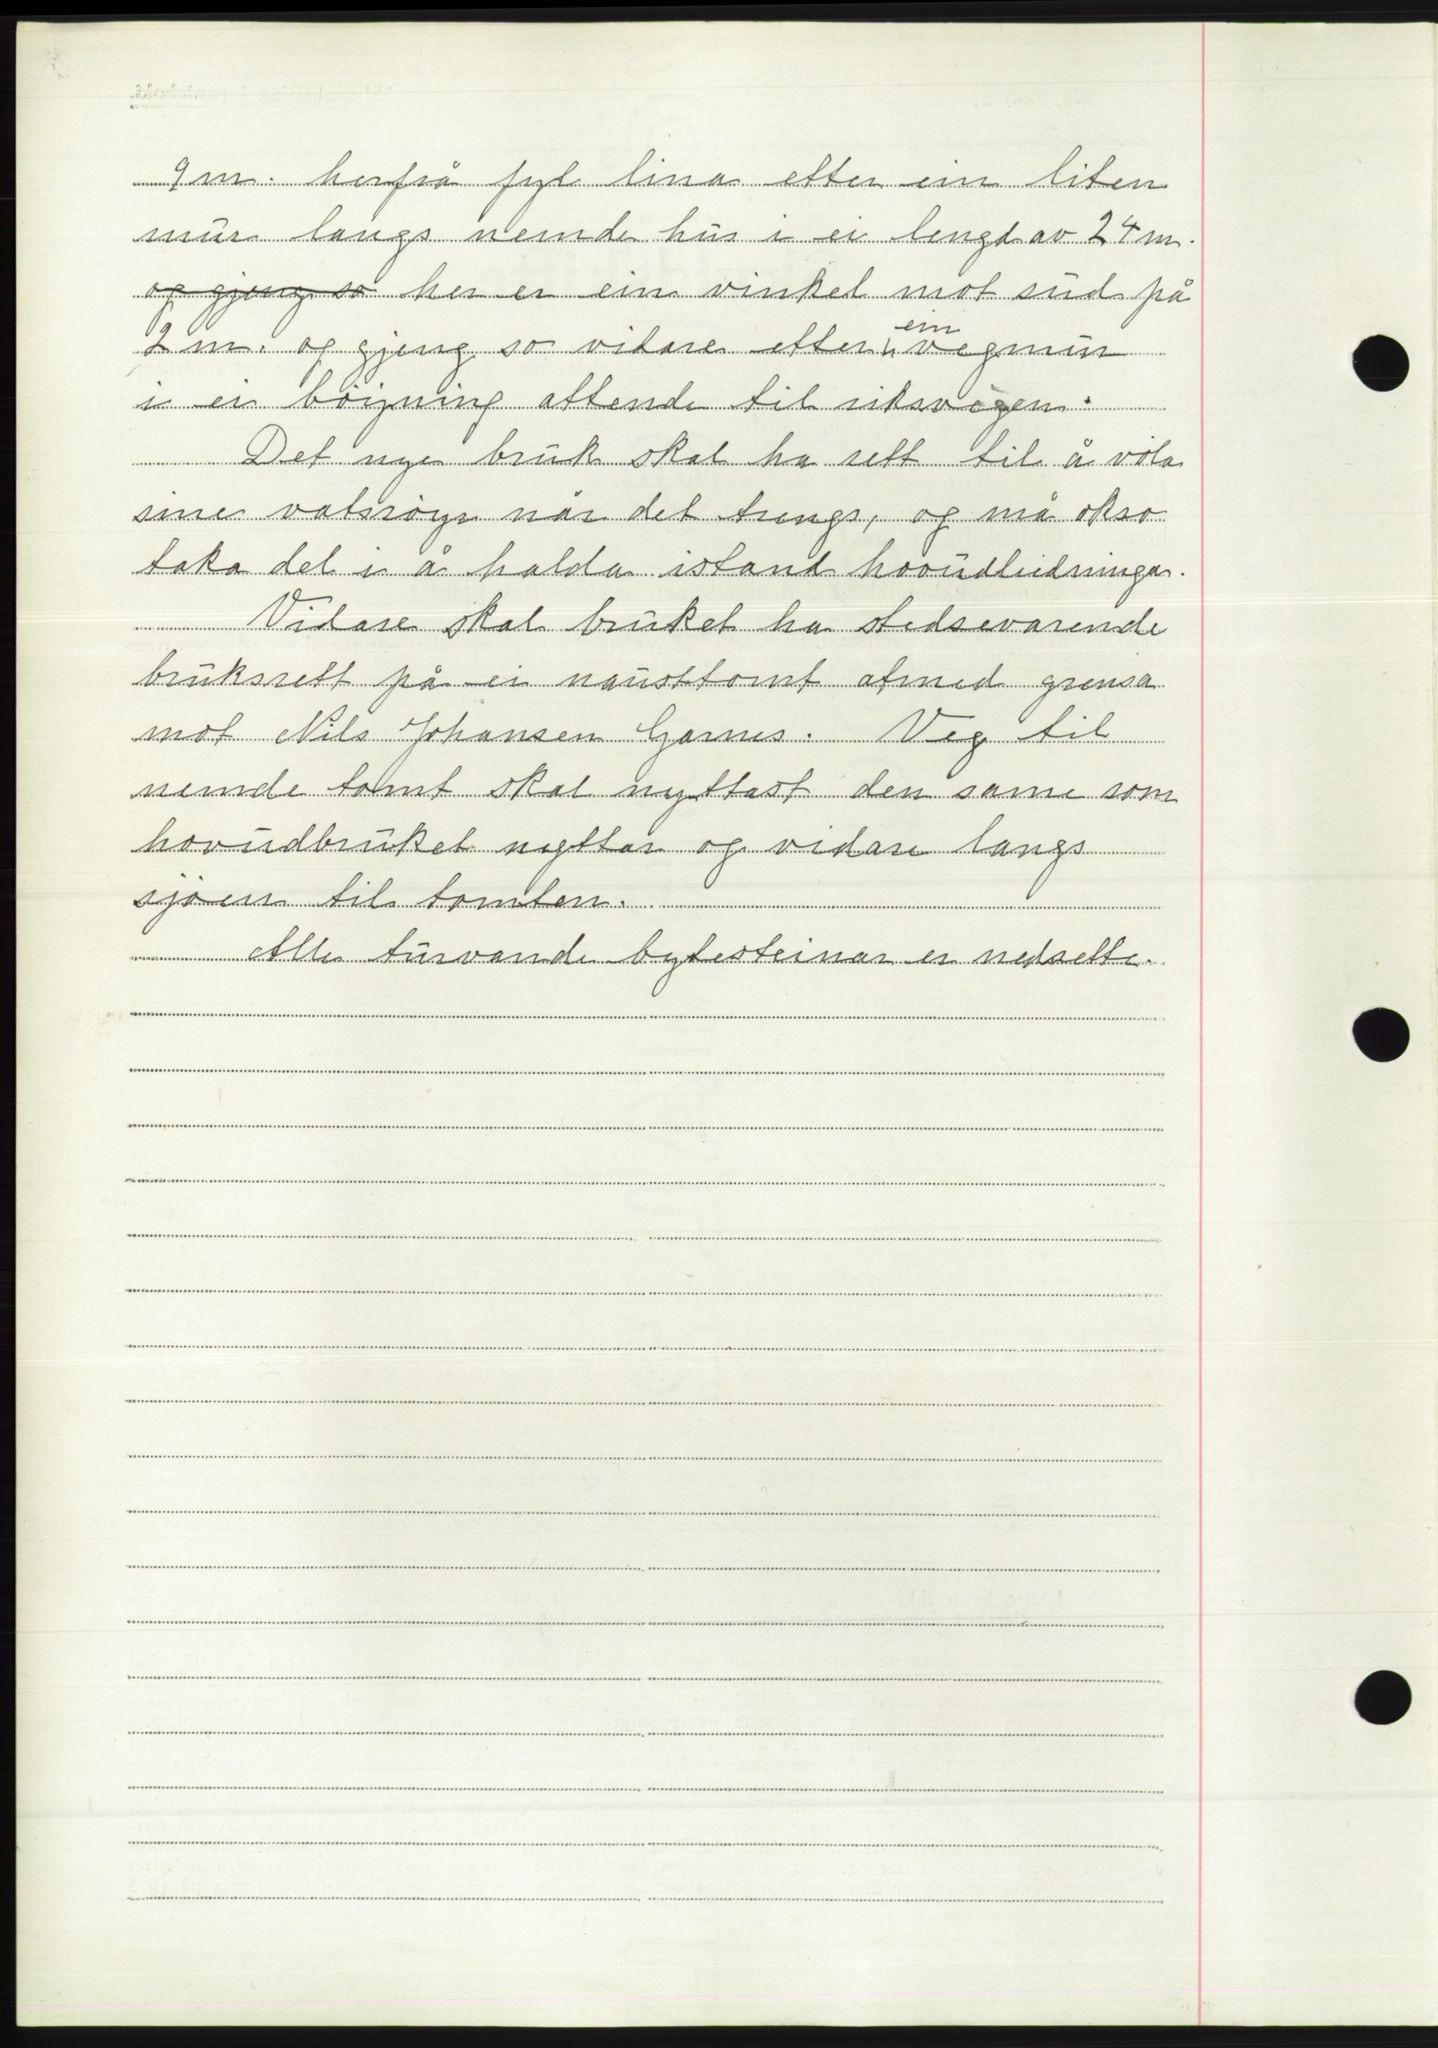 9 m. herfrå fyl lina etter ein liten
mur langs nemde hus i ei lengd av 24 m.
og gjeng so her er ein vinkel mot sud på
2 m. og gjeng so vidare etter ein vegmur
i ei böigning attende til riksvegen.
Det nye bruk skal ha rett til å völa
sine vatsröyr når det trengs, og må okso
taka del i å halda istand hovudledninga.
Vidare skal bruket ha stedsevarende
bruksrett på ei nausttomt atmed grensa
mot Nils Johansen Garnes. Veg til
nemde tomt skal nyttast den same som
hovudbruket nyttar og vidare langs
sjöen til tomten.
Alle turvande bytesteinar er nedsette.